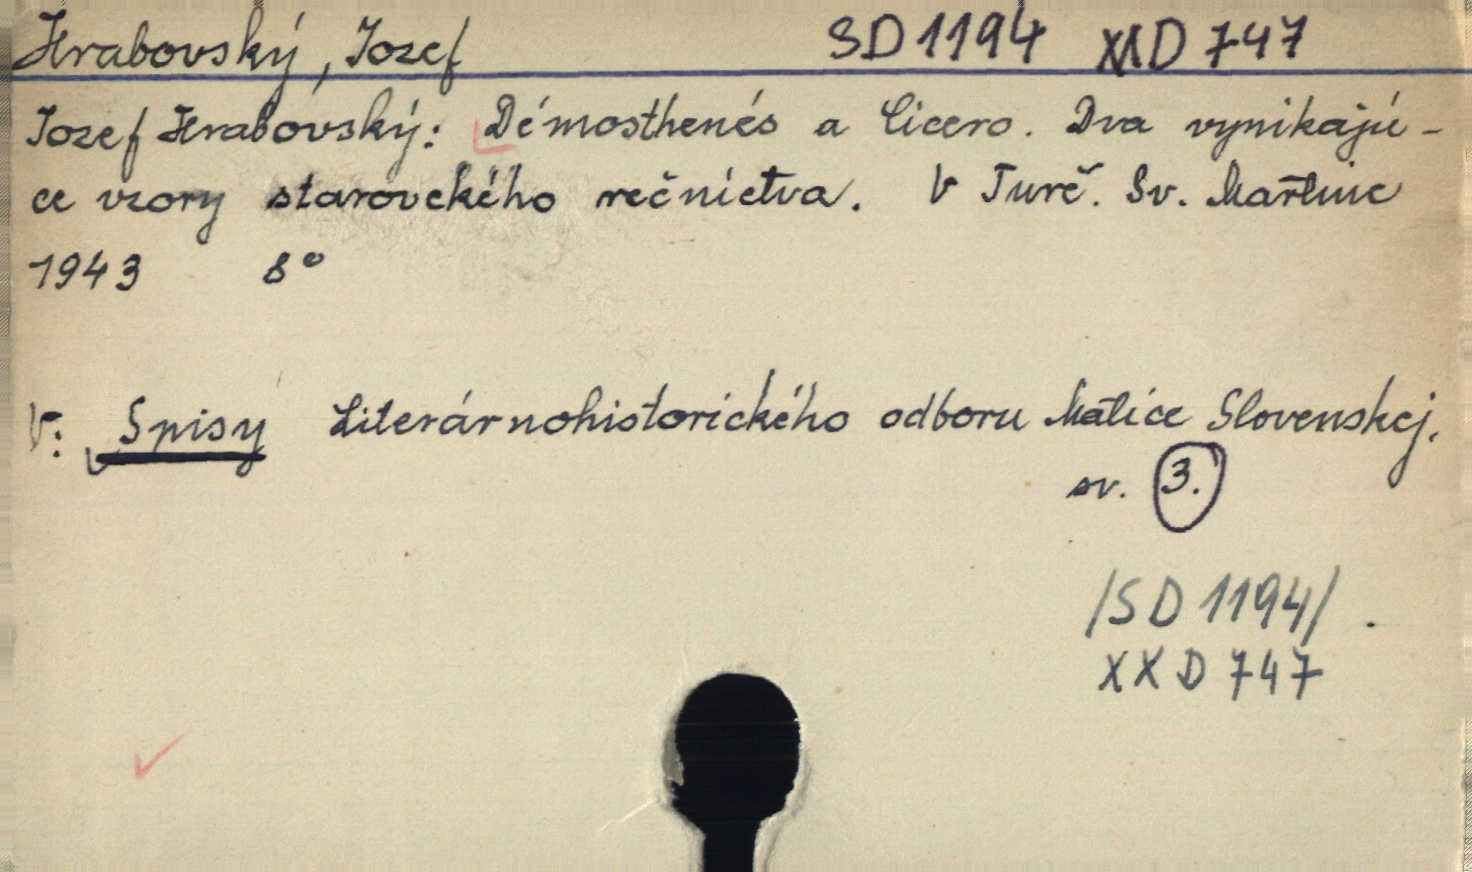 Hrabovský, Jozef SD 1194 XXD 747
Jozef Hrabovský: Démosthenés a Cicero. Dva vynikajú-
ce vzory starovekého rečníctva. V Turč. Sv. Martine
1943 8°
V: Spisy Literárnohistorického odboru Matice Slovenskej.
sv. 3.
/SD 1194/ .
XXD 747